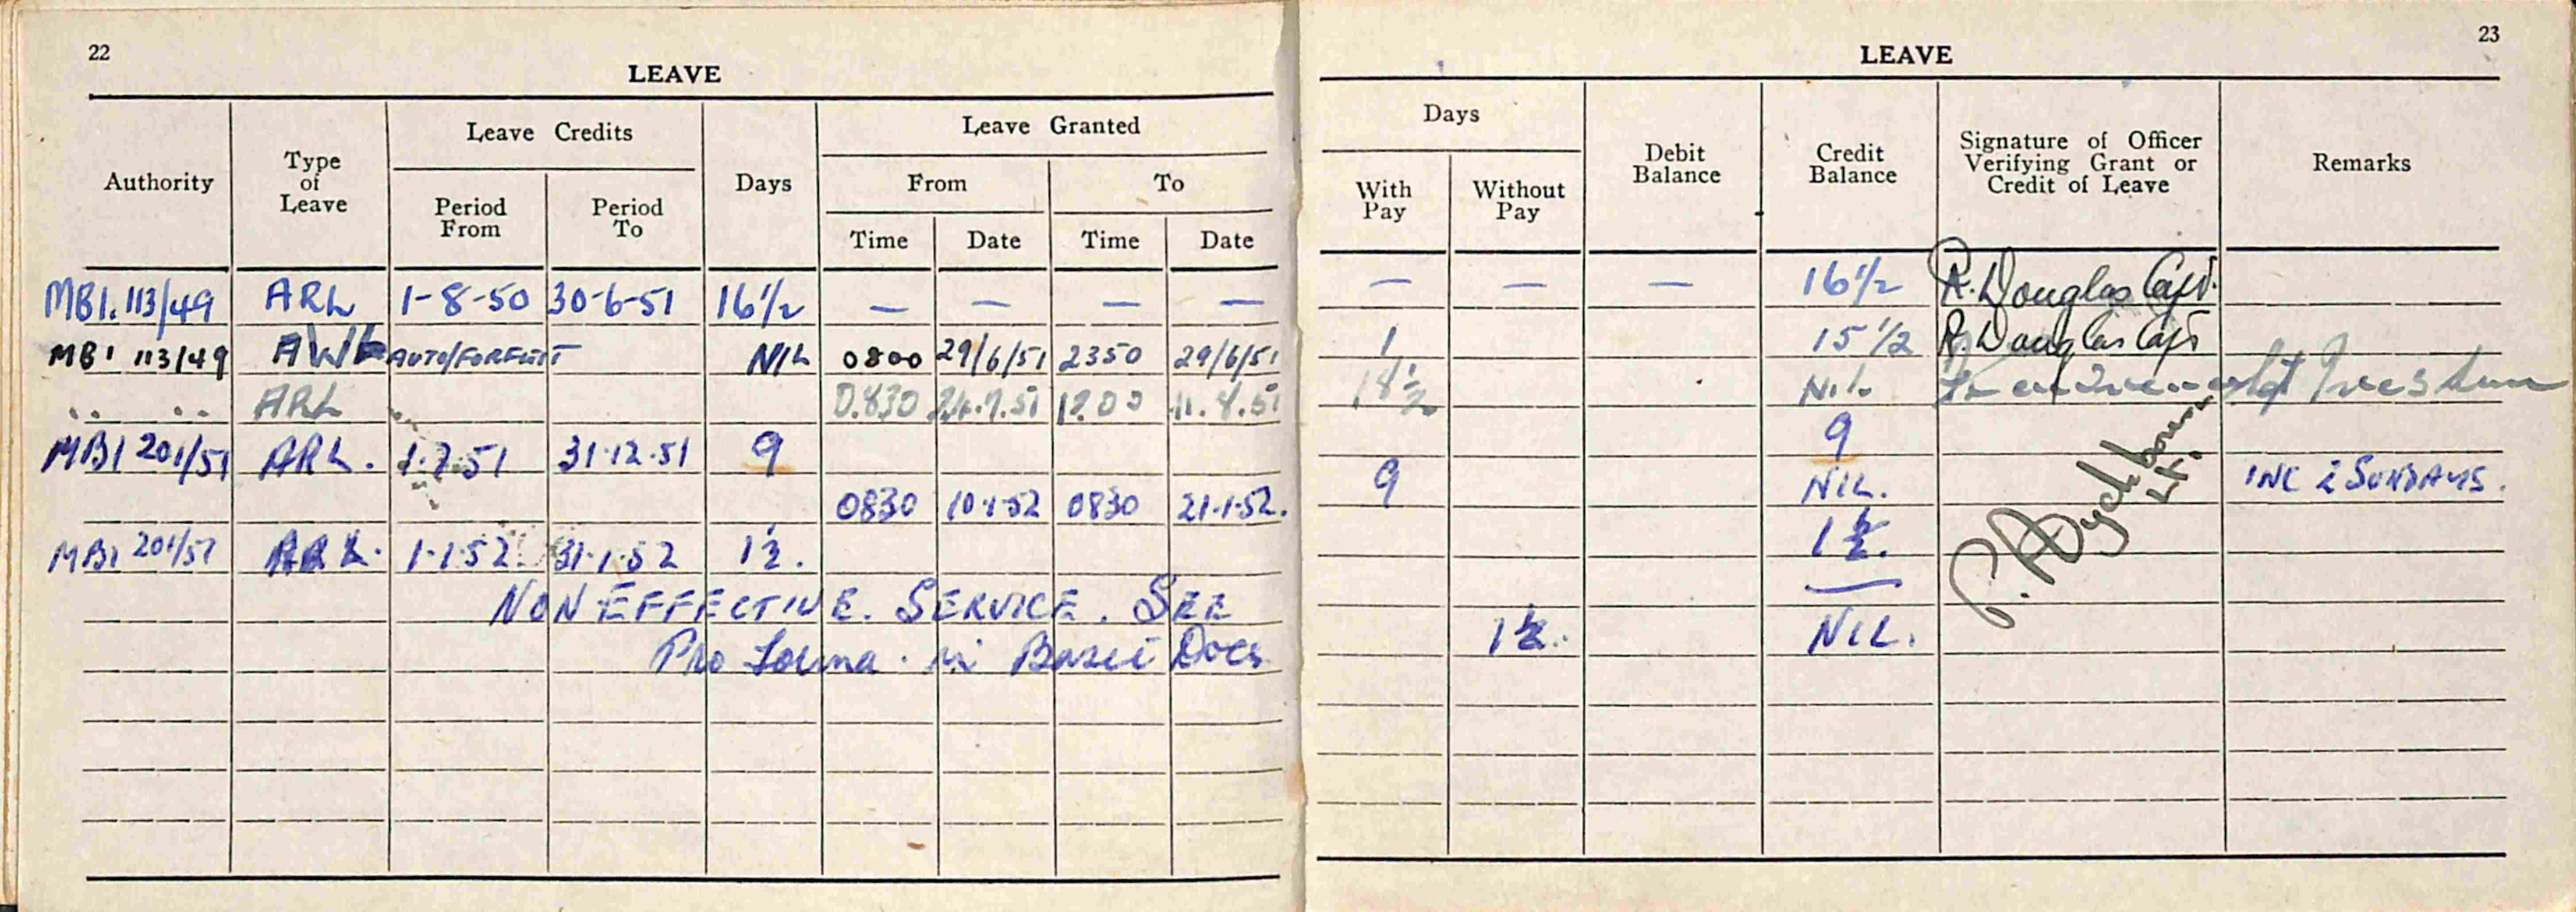 22
LEAVE
Authority Type of Leave Leave Credits Days Leave Granted
Period From Period To From To
Time Date Time Date
MBI. 113/49 ARL 1-8-50 30-6-51 16 1/2 — — — —
MBI 113/49 AWL AUTO/FORFEIT NIL 0800 29/6/51 2350 29/6/51
.. .. ARL 0830 24.7.51 1200 11.8.51
MBI 201/51 ARL. 1.7.51 31.12.51 9
0830 10.1.52 0830 21.1.52.
MBI 201/51 ARL. 1.1.52. 31.1.52 1 1/2.
NON EFFECTIVE. SERVICE. SEE
Pro Forma. in Basic Docs
23
LEAVE
Days Debit Balance Credit Balance Signature of Officer Verifying Grant or Credit of Leave Remarks
With Pay Without Pay
— — — 16 1/2 R. Douglas Capt.
1 15 1/2 R. Douglas Capt
18 1/2 Nil.
9
9 NIL. INC 2 SUNDAYS.
1 1/2.
1 1/2. NIL.
Lt.